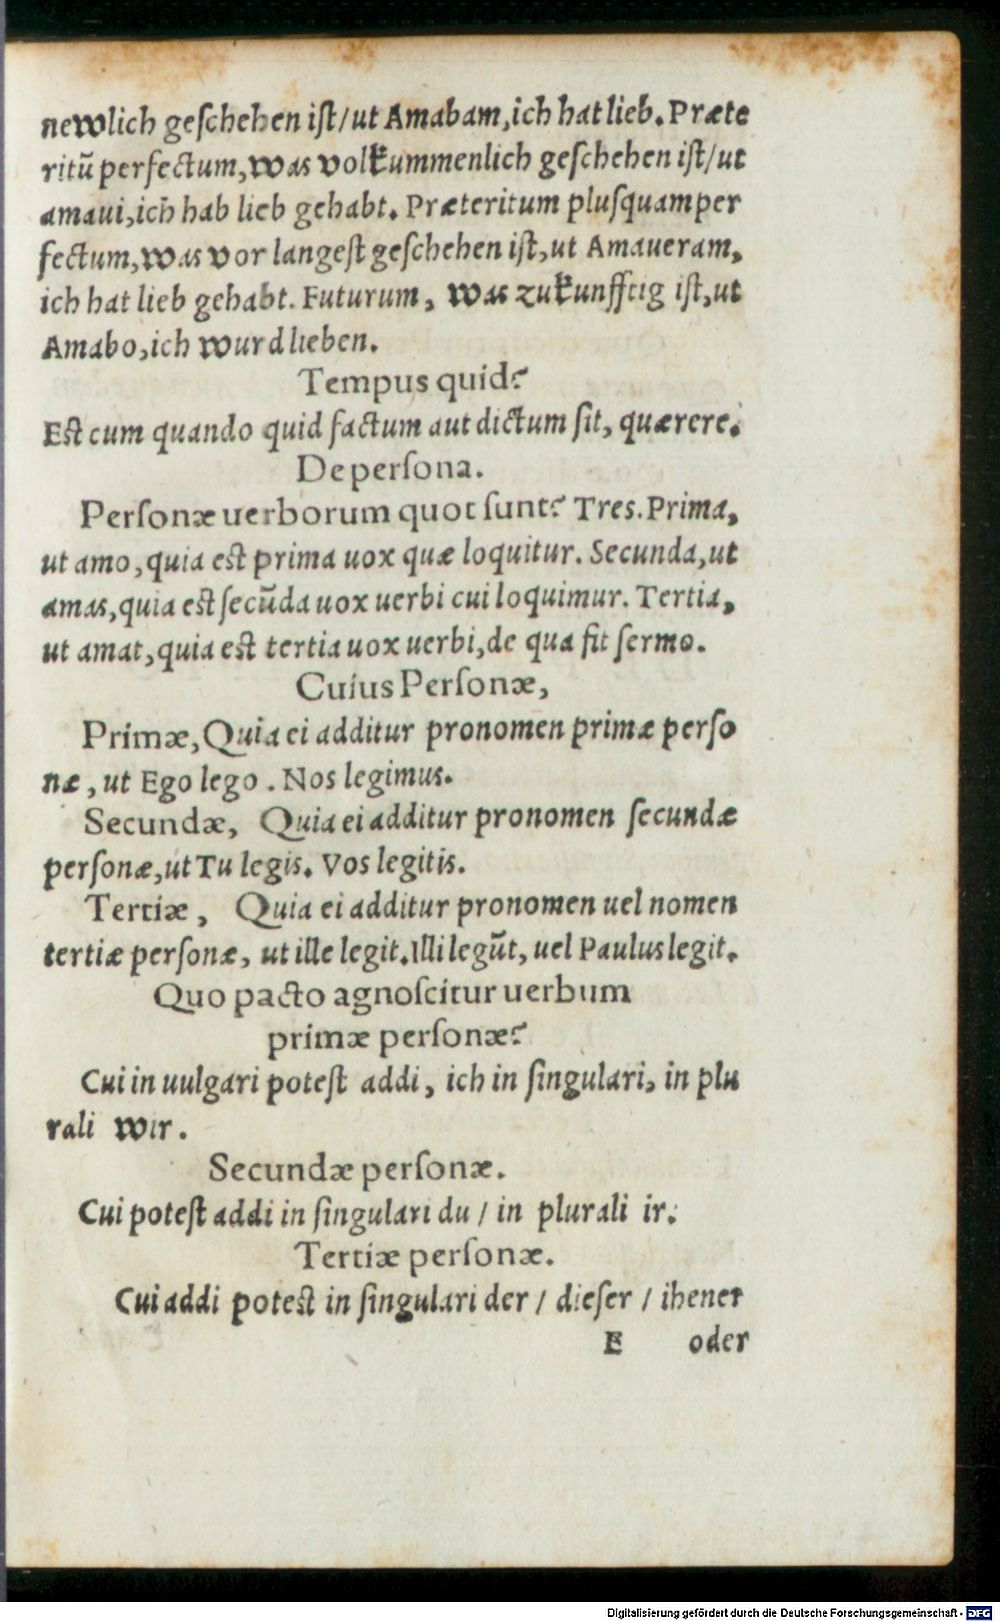 newlich geſchehen iſt/ut Amabam,ich hat lieb. Præte
ritũ perfectum, was volkummenlich geſchehen iſt/ut
amaui,ich hab lieb gehabt. Præteritum pluſquamper
fectum, was vor langeſt geſchehen iſt,ut Amaueram,
ich hat lieb gehabt. Futurum, was zukunfftig iſt,ut
Amabo,ich wurd lieben.
Tempus quid?
Eſt cum quando quid factum aut dictum ſit, quærere.
De perſona.
Perſonæ uerborum quot ſunt? Tres. Prima,
ut amo, quia eſt prima uox quæ loquitur. Secunda,ut
amas,quia eſt ſecũda uox uerbi cui loquimur. Tertia,
ut amat,quia eſt tertia uox uerbi,de qua fit ſermo.
Cuius Perſonæ,
Primæ, Quia ei additur pronomen primæ perſo
næ, ut Ego lego. Nos legimus.
Secundæ, Quia ei additur pronomen ſecundæ
perſonæ,ut Tu legis. Vos legitis.
Tertiæ, Quia ei additur pronomen uel nomen
tertiæ perſonæ, ut ille legit. Illi legũt, uel Paulus legit.
Quo pacto agnoſcitur uerbum
primæ perſonæ?
Cui in uulgari poteſt addi, ich in ſingulari, in plu
rali wir.
Secundæ perſonæ.
Cui poteſt addi in ſingulari du / in plurali ir.
Tertiæ perſonæ.
Cui addi poteſt in ſingulari der / dieſer / ihener
E oder
Digitalisierung gefördert durch die Deutsche Forschungsgemeinschaft - DFG